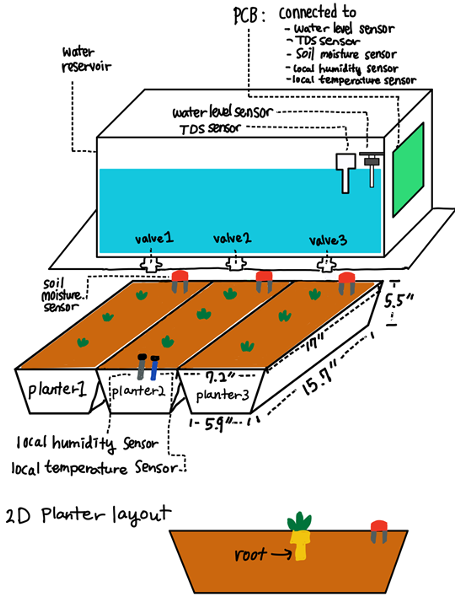 PCB: connected to
- water level sensor
- TDS sensor
- Soil moisture sensor
- local humidity sensor
- local temperature sensor
water
reservoir
water level sensor
TDS sensor
valve 1
valve 2
valve 3
soil
moisture
sensor
5.5"
17"
7.2"
15.7"
5.9"
planter1
planter2
planter3
local humidity sensor
local temperature sensor
2D Planter layout
root